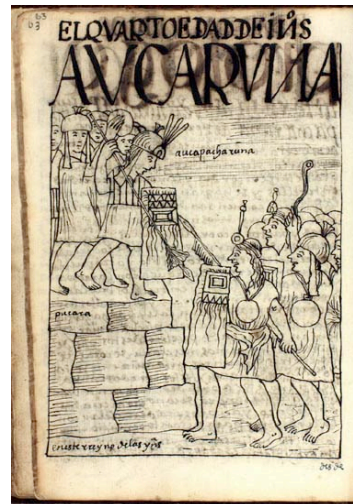 63
63
EL QVARTO EDAD DE IN̄S
AVCARVNA
aucapacharuna
pucara
en este rreyno de las yn̄s